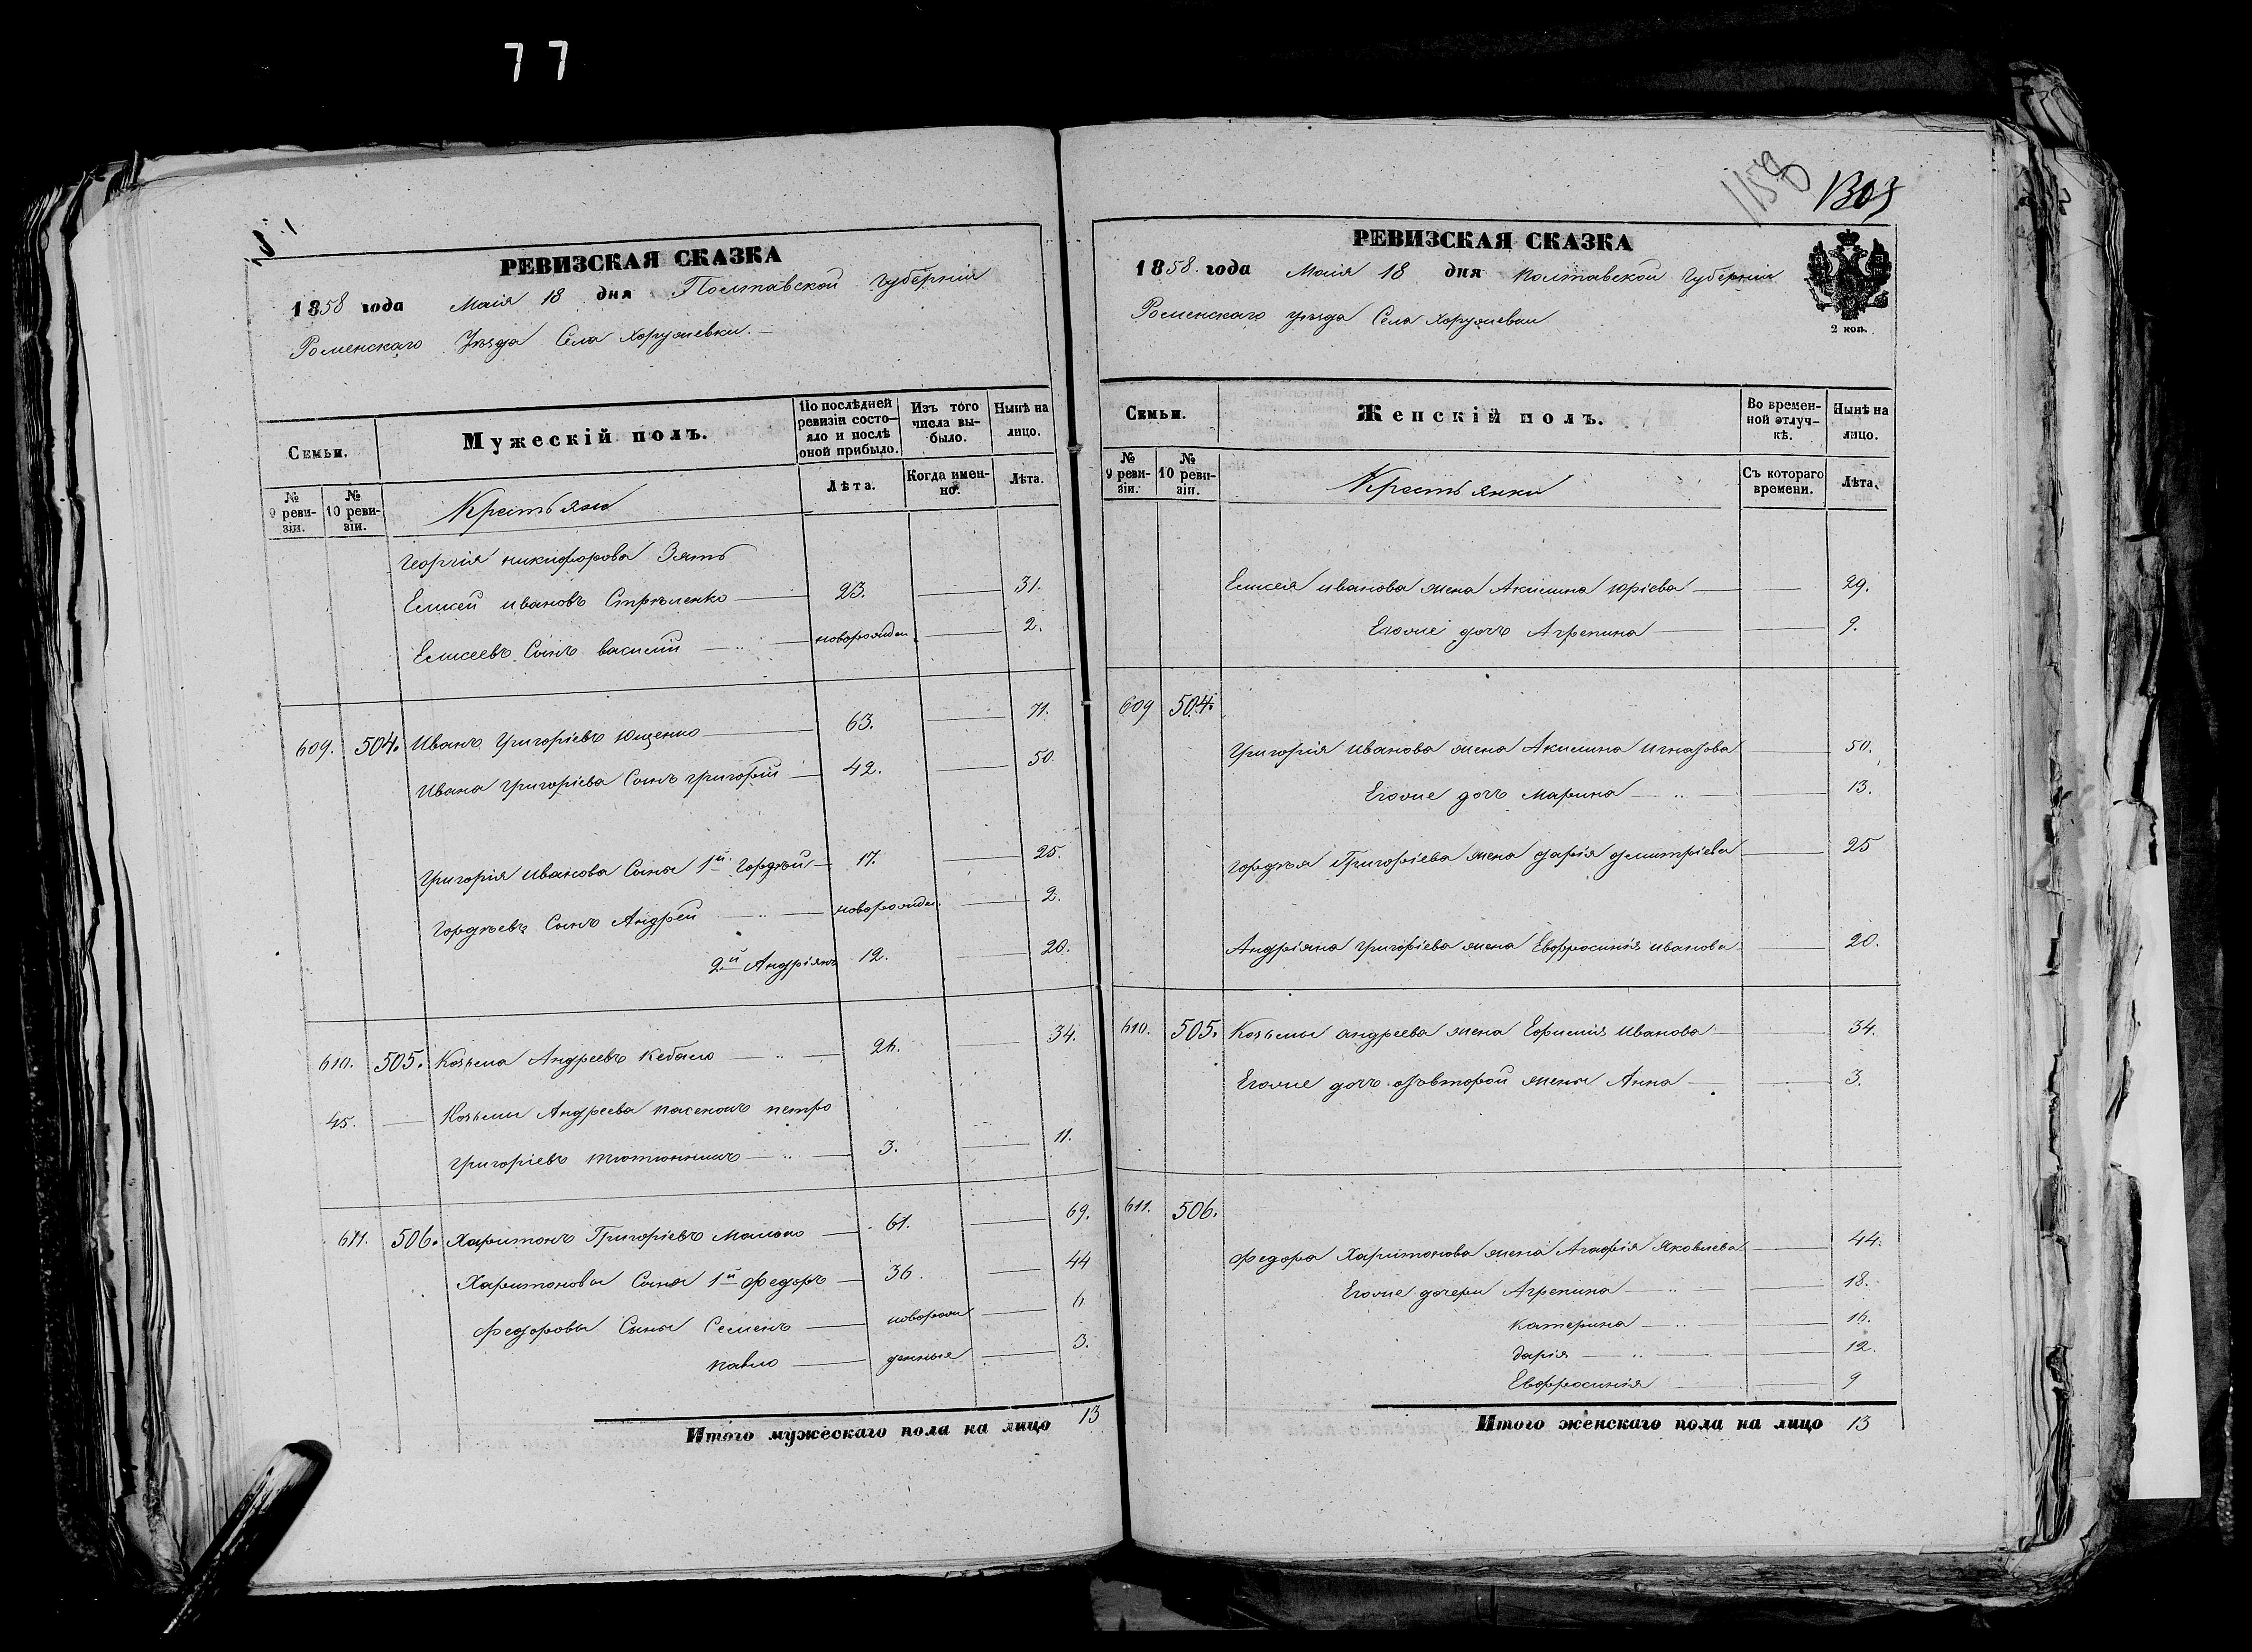 77
РЕВИЗСКАЯ СКАЗКА
1858 года Маія 18 дня Полтавской Губерніи
Роменскаго Уѣзда Села Хоружевки
Семьи.
Мужескій полъ.
По послѣдней ревизіи состо-
яло и послѣ
оной прибыло.
Изъ того
числа вы-
было.
Нынѣ на
лицо.
№
9 реви-
зіи.
№
10 реви-
зіи.
Крестьяне
Лѣта.
Когда имен-
но.
Лѣта.
Георгія никифорова Зять
Елисей ивановъ Стрѣленко 23. 31.
Елисеевъ Сынъ василий новорожден. 2.
609. 504. Иванъ Григоріевъ Ющенко 63. 71.
Ивана Григоріева Сынъ григорій 42. 50.
Григорія Иванова Сыны 1й Гордѣй 17. 25.
Гордѣевъ Сынъ Андрей новорожден. 2.
2й Андріянъ 12. 20.
610. 505. Козьма Андреевъ Кебало 26. 34.
45. Козьмы Андреева пасенокъ петро
григоріевъ тютюнникъ 3. 11.
611. 506. Харитонъ Григоріевъ Малько 61. 69.
Харитоновы Сыны 1й Федоръ 36. 44
Федоровы Сыны Семенъ новорож 6
павло денные 3.
Итого мужескаго пола на лицо 13
1158 1303
РЕВИЗСКАЯ СКАЗКА
1858. года Маія 18 дня Полтавской Губерніи
Роменскаго уѣзда Села Хоружевки
2 коп.
Семьи.
Женскій полъ.
Во времен-
ной отлуч-
кѣ.
Нынѣ на
лицо.
№
9 реви-
зіи.
№
10 реви-
зіи.
Крестьянки
Съ котораго
времени.
Лѣта.
Елисея иванова жена Акилина юріева 29.
Егоже дочь Агрепина 9.
609 504.
Григорія иванова жена Акилина игнатова 50.
Егоже дочь Марина 13.
Гордѣя Григоріева жена дарія дмитріева 25
Андріяна григоріева жена Евфросинія иванова 20.
610. 505. Козьмы андреева жена Ефимія Иванова 34.
Егоже дочь отъвторой жены Анна 3.
611. 506.
Федора Харитонова жена Агафія Яковлева 44.
Егоже дочери Агрепина 18.
Катерина 16.
дарія 12.
Евфросинія 9
Итого женскаго пола на лицо 13